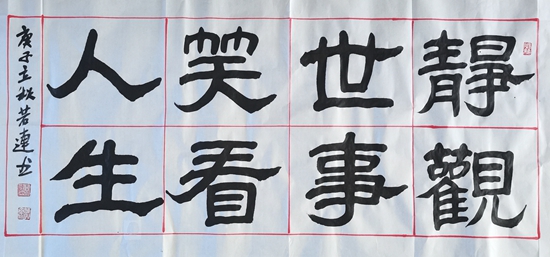 靜觀
世事
笑看
人生
庚子立秋若連书